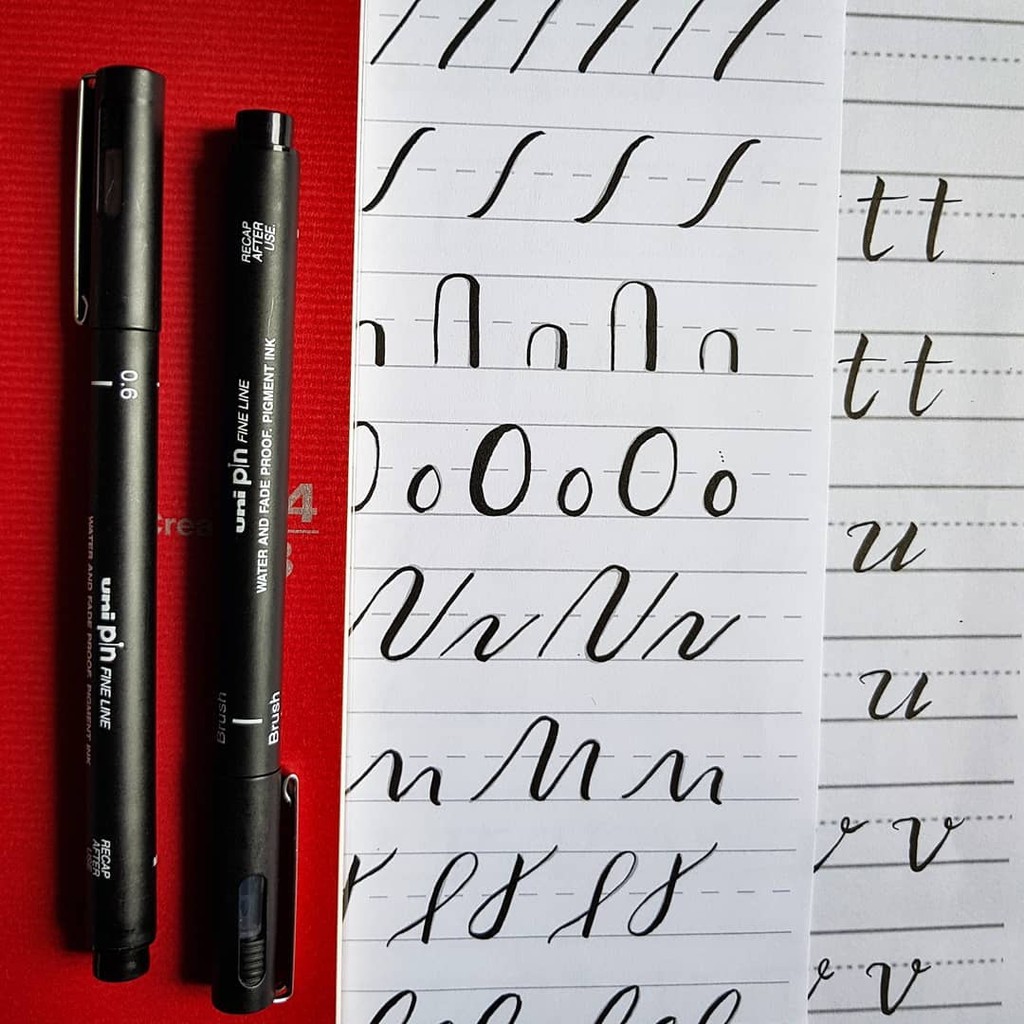 0.6
uni pin FINE LINE
WATER AND FADE PROOF. PIGMENT INK
RECAP
AFTER
USE
RECAP
AFTER
USE.
uni pin FINE LINE
WATER AND FADE PROOF. PIGMENT INK
Brush
Brush
Crea
4
o O o O o
tt
tt
u
u
v
v